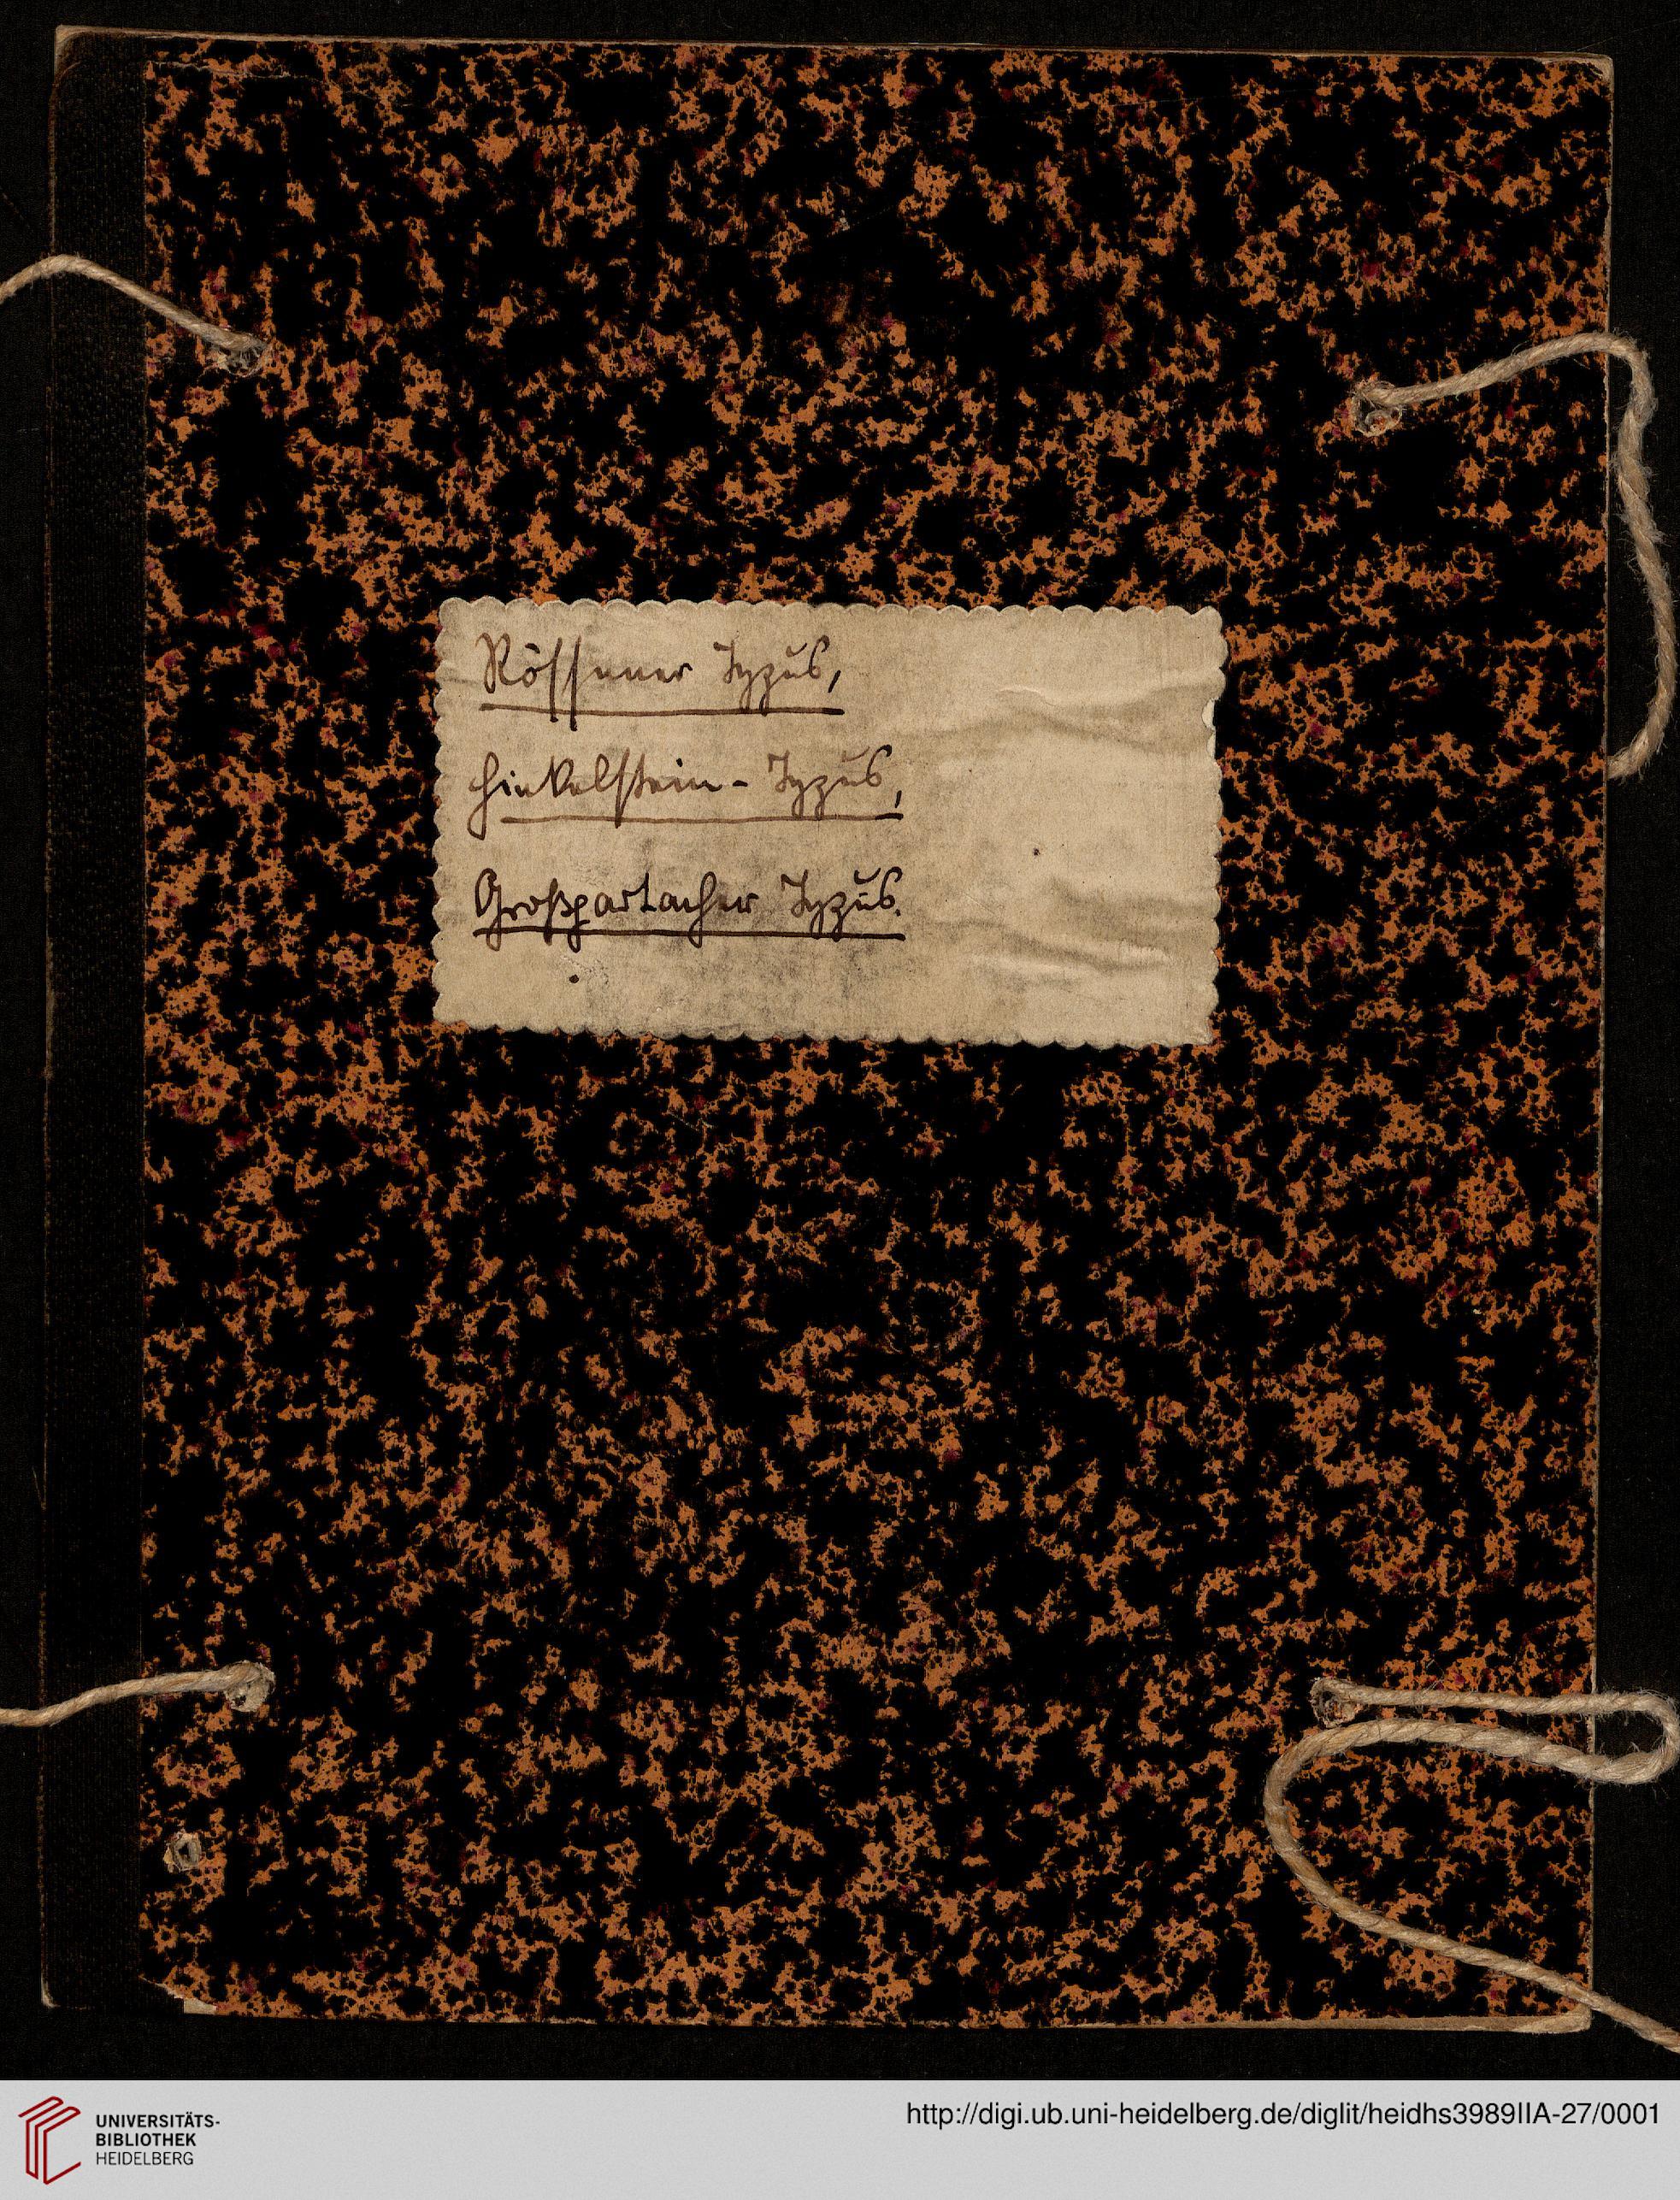 Rössener Typus,
Hinkelstein-Typus,
Großgartacher Typus.
UNIVERSITÄTS-
BIBLIOTHEK
HEIDELBERG
http://digi.ub.uni-heidelberg.de/diglit/heidhs3989IIA-27/0001